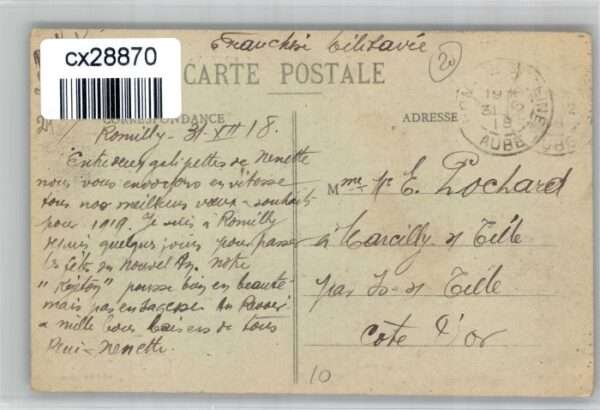 cx28870
Franchise Militaire
20
CARTE POSTALE
CORRESPONDANCE
ADRESSE
AUBE
Romilly - 31-XII 18.
Entre deux galipettes de Nenette
nous vous envoyons en vitesse
tous nos meilleurs vœux & souhaits
pour 1919. Je suis à Romilly
depuis quelques jours pour passer
la fête du nouvel An. Notre
" " pousse bien en beauté
mais pas en sagesse. Au Revoir
& mille bons baisers de tous
- Nenette.
Mme E. Pochard
à Marcilly s/ Tille
par Is-s/ Tille
Cote d'or
10